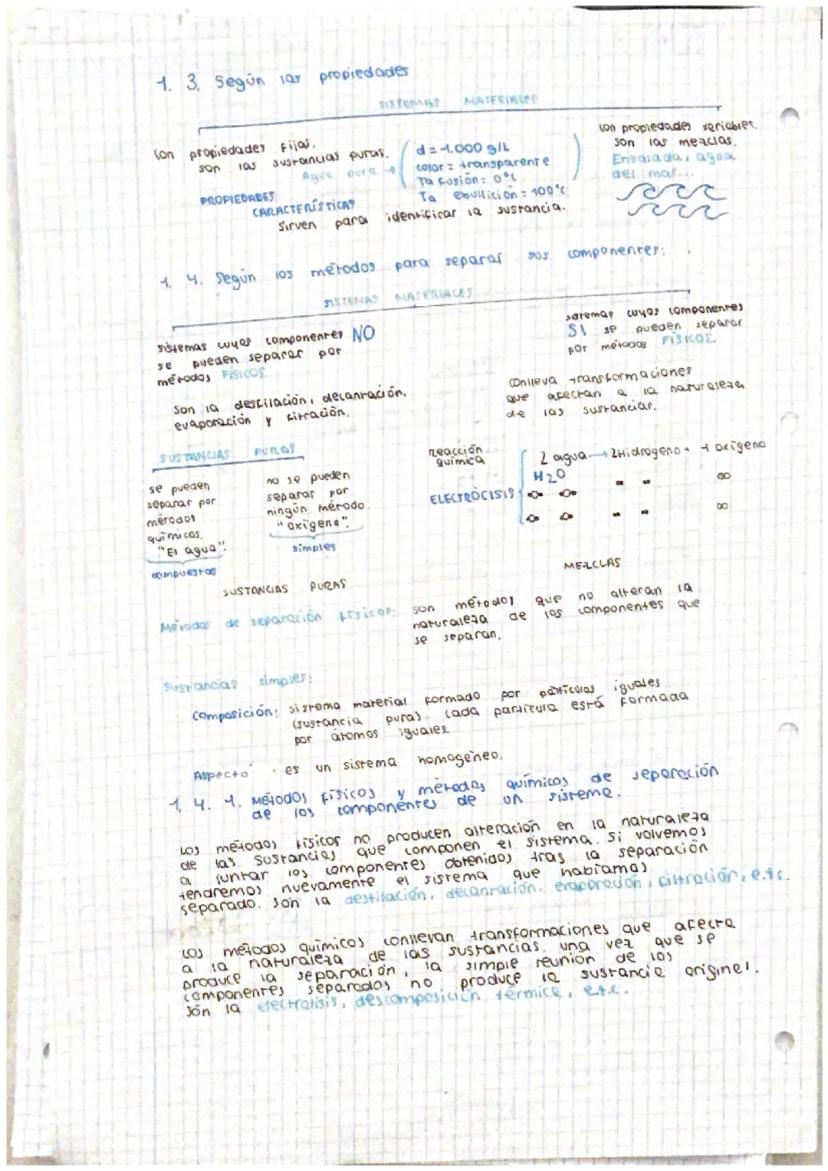 1. 3. Según las propiedades
SISTEMAS MATERIALES
Con propiedades fijas.
son las sustancias puras.
Agua pura →
d = 1.000 g/L
color = transparente
Ta fusión = 0°C
Ta ebullición = 100°C
PROPIEDADES
CARACTERÍSTICAS
Sirven para identificar la sustancia.
Con propiedades variables.
Son las mezclas.
Ensalada, agua
del mar...
1. 4. Según los métodos para separar sus componentes:
SISTEMAS MATERIALES
sistemas cuyos componentes NO
se pueden separar por
métodos FÍSICOS
Son la destilación, decantación,
evaporación y filtración.
sistemas cuyos componentes
SI se pueden separar
por métodos FÍSICOS.
Conlleva transformaciones
que afectan a la naturaleza
de las sustancias.
SUSTANCIAS PURAS
se pueden
separar por
métodos
químicos.
"El agua".
compuestos
no se pueden
separar por
ningún método.
"oxígeno".
simples
Reacción
química
ELECTRÓCISIS
2 agua → 2Hidrógeno + 1 oxígeno
H2O
SUSTANCIAS PURAS
MEZCLAS
Métodos de separación físicos: son métodos que no alteran la
naturaleza de los componentes que
se separan.
Sustancias simples:
Composición: sistema material formado por partículas iguales
(sustancia pura). Cada partícula está formada
por átomos iguales.
Aspecto: es un sistema homogéneo.
1. 4. 1. Métodos físicos y métodos químicos de separación
de los componentes de un sistema.
Los métodos físicos no producen alteración en la naturaleza
de las sustancias que componen el sistema. Si volvemos
a juntar los componentes obtenidos tras la separación
tendremos nuevamente el sistema que habíamos
separado. Son la destilación, decantación, evaporación, filtración, e.t.c.
Los métodos químicos conllevan transformaciones que afecta
a la naturaleza de las sustancias. una vez que se
produce la separación, la simple reunión de los
componentes separados no produce la sustancia original.
Són la electrolisis, descomposición térmica, e.t.c.